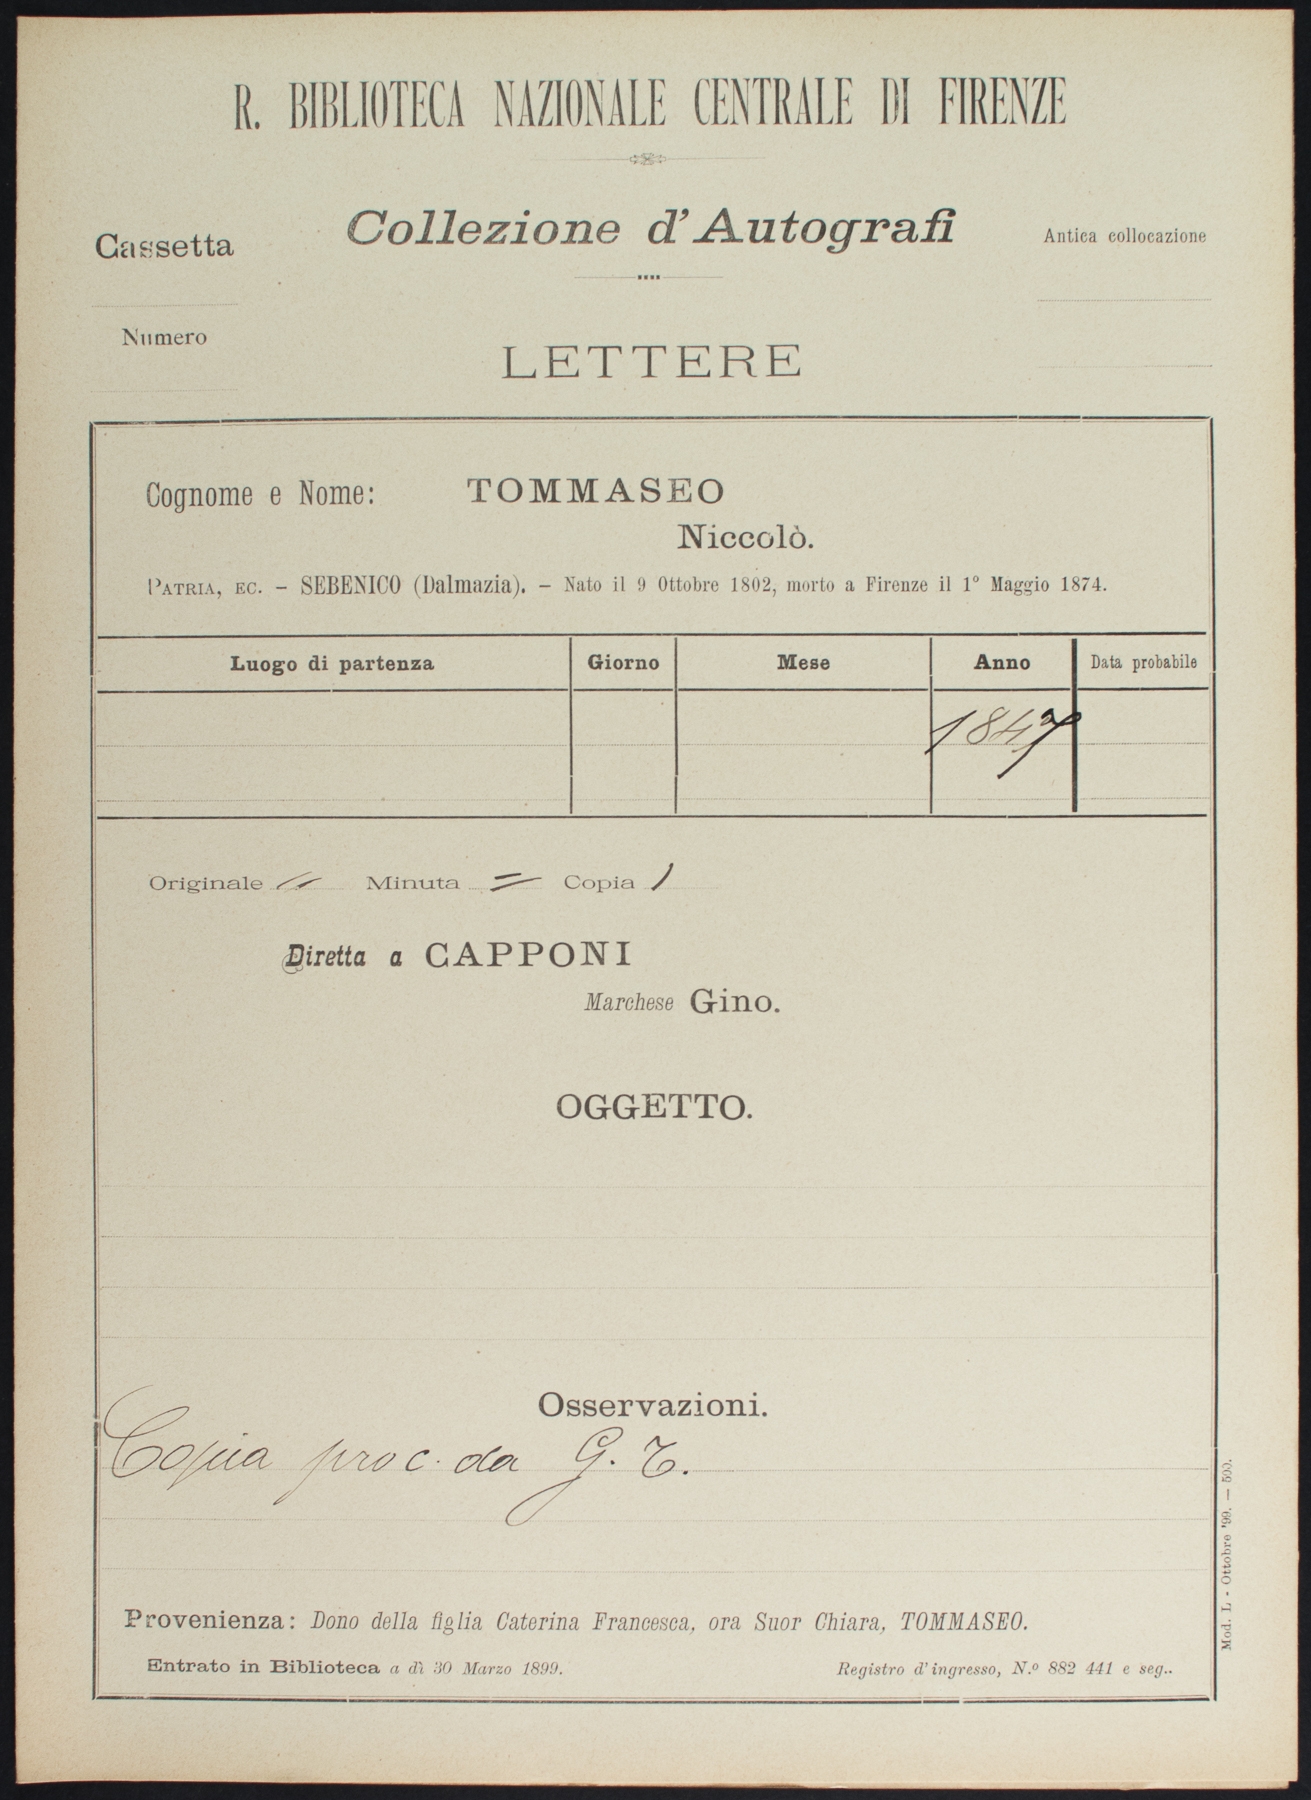 R. BIBLIOTECA NAZIONALE CENTRALE DI FIRENZE
Cassetta
Collezione d'Autografi
Antica collocazione
Numero
LETTERE
Cognome e Nome: TOMMASEO
Niccolò.
PATRIA, EC. – SEBENICO (Dalmazia). – Nato il 9 Ottobre 1802, morto a Firenze il 1º Maggio 1874.
Luogo di partenza Giorno Mese Anno Data probabile
1847
Originale // Minuta = Copia 1
Diretta a CAPPONI
Marchese Gino.
OGGETTO.
Osservazioni.
Copia proc. da G. T.
Provenienza: Dono della figlia Caterina Francesca, ora Suor Chiara, TOMMASEO.
Entrato in Biblioteca a dì 30 Marzo 1899. Registro d'ingresso, N.º 882 441 e seg..
Mod. L - Ottobre '99. — 500.